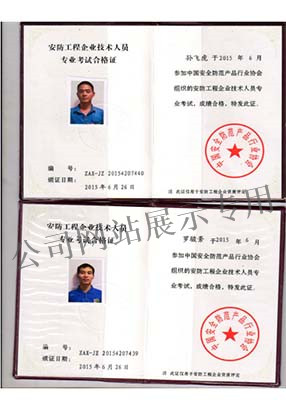 安防工程企业技术人员
专业考试合格证
编 号: ZAX-JZ 20154207440
颁证日期: 2015年6月26日
孙飞虎 于2015年 6月
参加中国安全防范产品行业协会
组织的安防工程企业技术人员专
业考试，成绩合格，特发此证。
中国安全防范产品行业协会
注 此证仅用于安防工程企业资质评定
安防工程企业技术人员
专业考试合格证
编 号: ZAX-JZ 20154207439
颁证日期: 2015年6月26日
罗骏景 于2015年 6月
参加中国安全防范产品行业协会
组织的安防工程企业技术人员专
业考试，成绩合格，特发此证。
中国安全防范产品行业协会
注 此证仅用于安防工程企业资质评定
公司网站展示专用